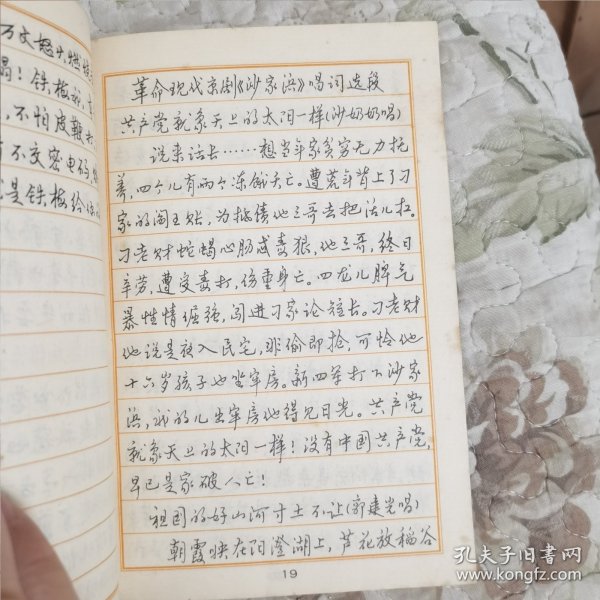 万丈怒火燃烧
！铁板神，
，不怕皮鞭打
不交密电码，
是铁梅给
革命现代京剧《沙家浜》唱词选段
共产党就象天上的太阳一样(沙奶奶唱)
说来话长……想当年家贫穷无力抚
养，四个儿有两个冻饿夭亡。遭荒年背上了刁
家的阎王账，为抵债他三哥去把活儿扛。
刁老财蛇蝎心肠咸毒狼，他三哥，终日
辛劳，遭受毒打，伤重身亡。四龙儿脾气
暴性情倔强，闯进刁家论短长。刁老财
他说是夜入民宅，非偷即抢，可怜他
十六岁孩子也坐牢房。新四军打下沙家
浜，我的儿出牢房他得见日光。共产党
就象天上的太阳一样！没有中国共产党，
早已是家破人亡！
祖国的好山河寸土不让(郭建光唱)
朝霞映在阳澄湖上，芦花放稻谷
19
孔夫子旧书网
www.kongfz.com